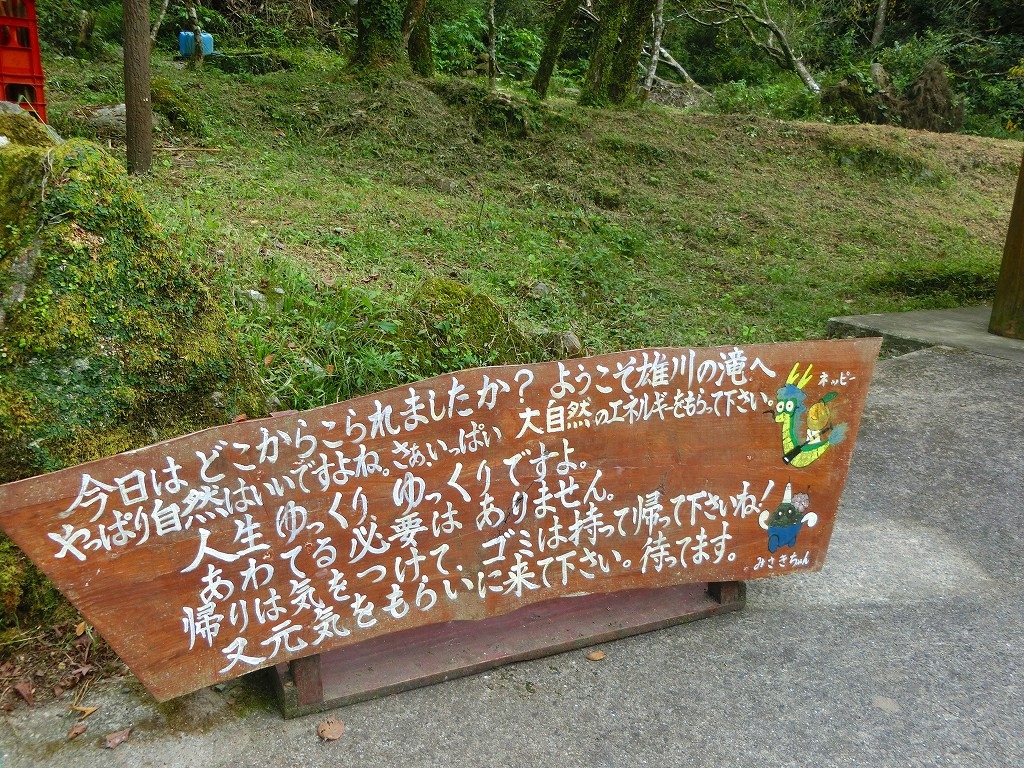 今日はどこからこられましたか？ようこそ雄川の滝へ
やっぱり自然はいいですよね。さぁ、いっぱい大自然のエネルギーをもらって下さい。
人生ゆっくりゆっくりですよ。
あわてる必要はありません。
帰りは気をつけて、ゴミは持って帰って下さいね！
又元気をもらいに来て下さい。待てます。
ネッピー
みさきちゃん